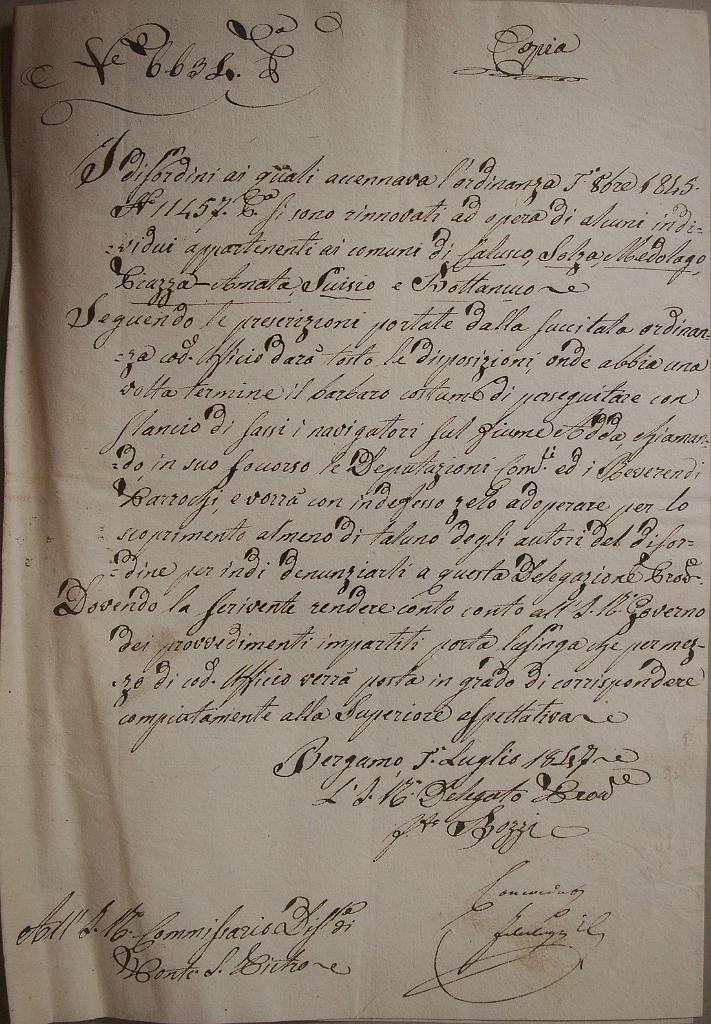 N.e 6634. P.a
Copia
I disordini ai quali accennava l'ordinanza 1.° 8bre 1845.
N° 11457. P.a si sono rinnovati ad opera di alcuni indi-
-:vidui appartenenti ai comuni di Calusco, Solza, Medolago,
Suisio e Bottanuco
Seguendo le prescrizioni portate dalla succitata ordinan-
-:za cod.° Ufficio darà tosto le disposizioni, onde abbia una
volta termine il barbaro costume di perseguitare con
slancio di sassi i navigatori sul fiume Adda, chiaman-
-:do in suo soccorso le Deputazioni Com.li ed i Reverendi
Parrochi, e vorrà con indefesso zelo adoperare per lo
scoprimento almeno di taluno degli autori del disor-
-:dine per indi denunziarli a questa Delegazione Prov.e
Dovendo la scrivente rendere conto conto all'I. R. Governo
dei provvedimenti impartiti porta lusinga che per mez-
-:zo di cod.° Ufficio verrà posta in grado di corrispondere
compiutamente alla Superiore aspettativa
Bergamo, 1.° Luglio 1847
L'I. R. Delegato Prov.e
f.to Bozzi
All'I. R. Commissario Dist.le di
Ponte S. Pietro